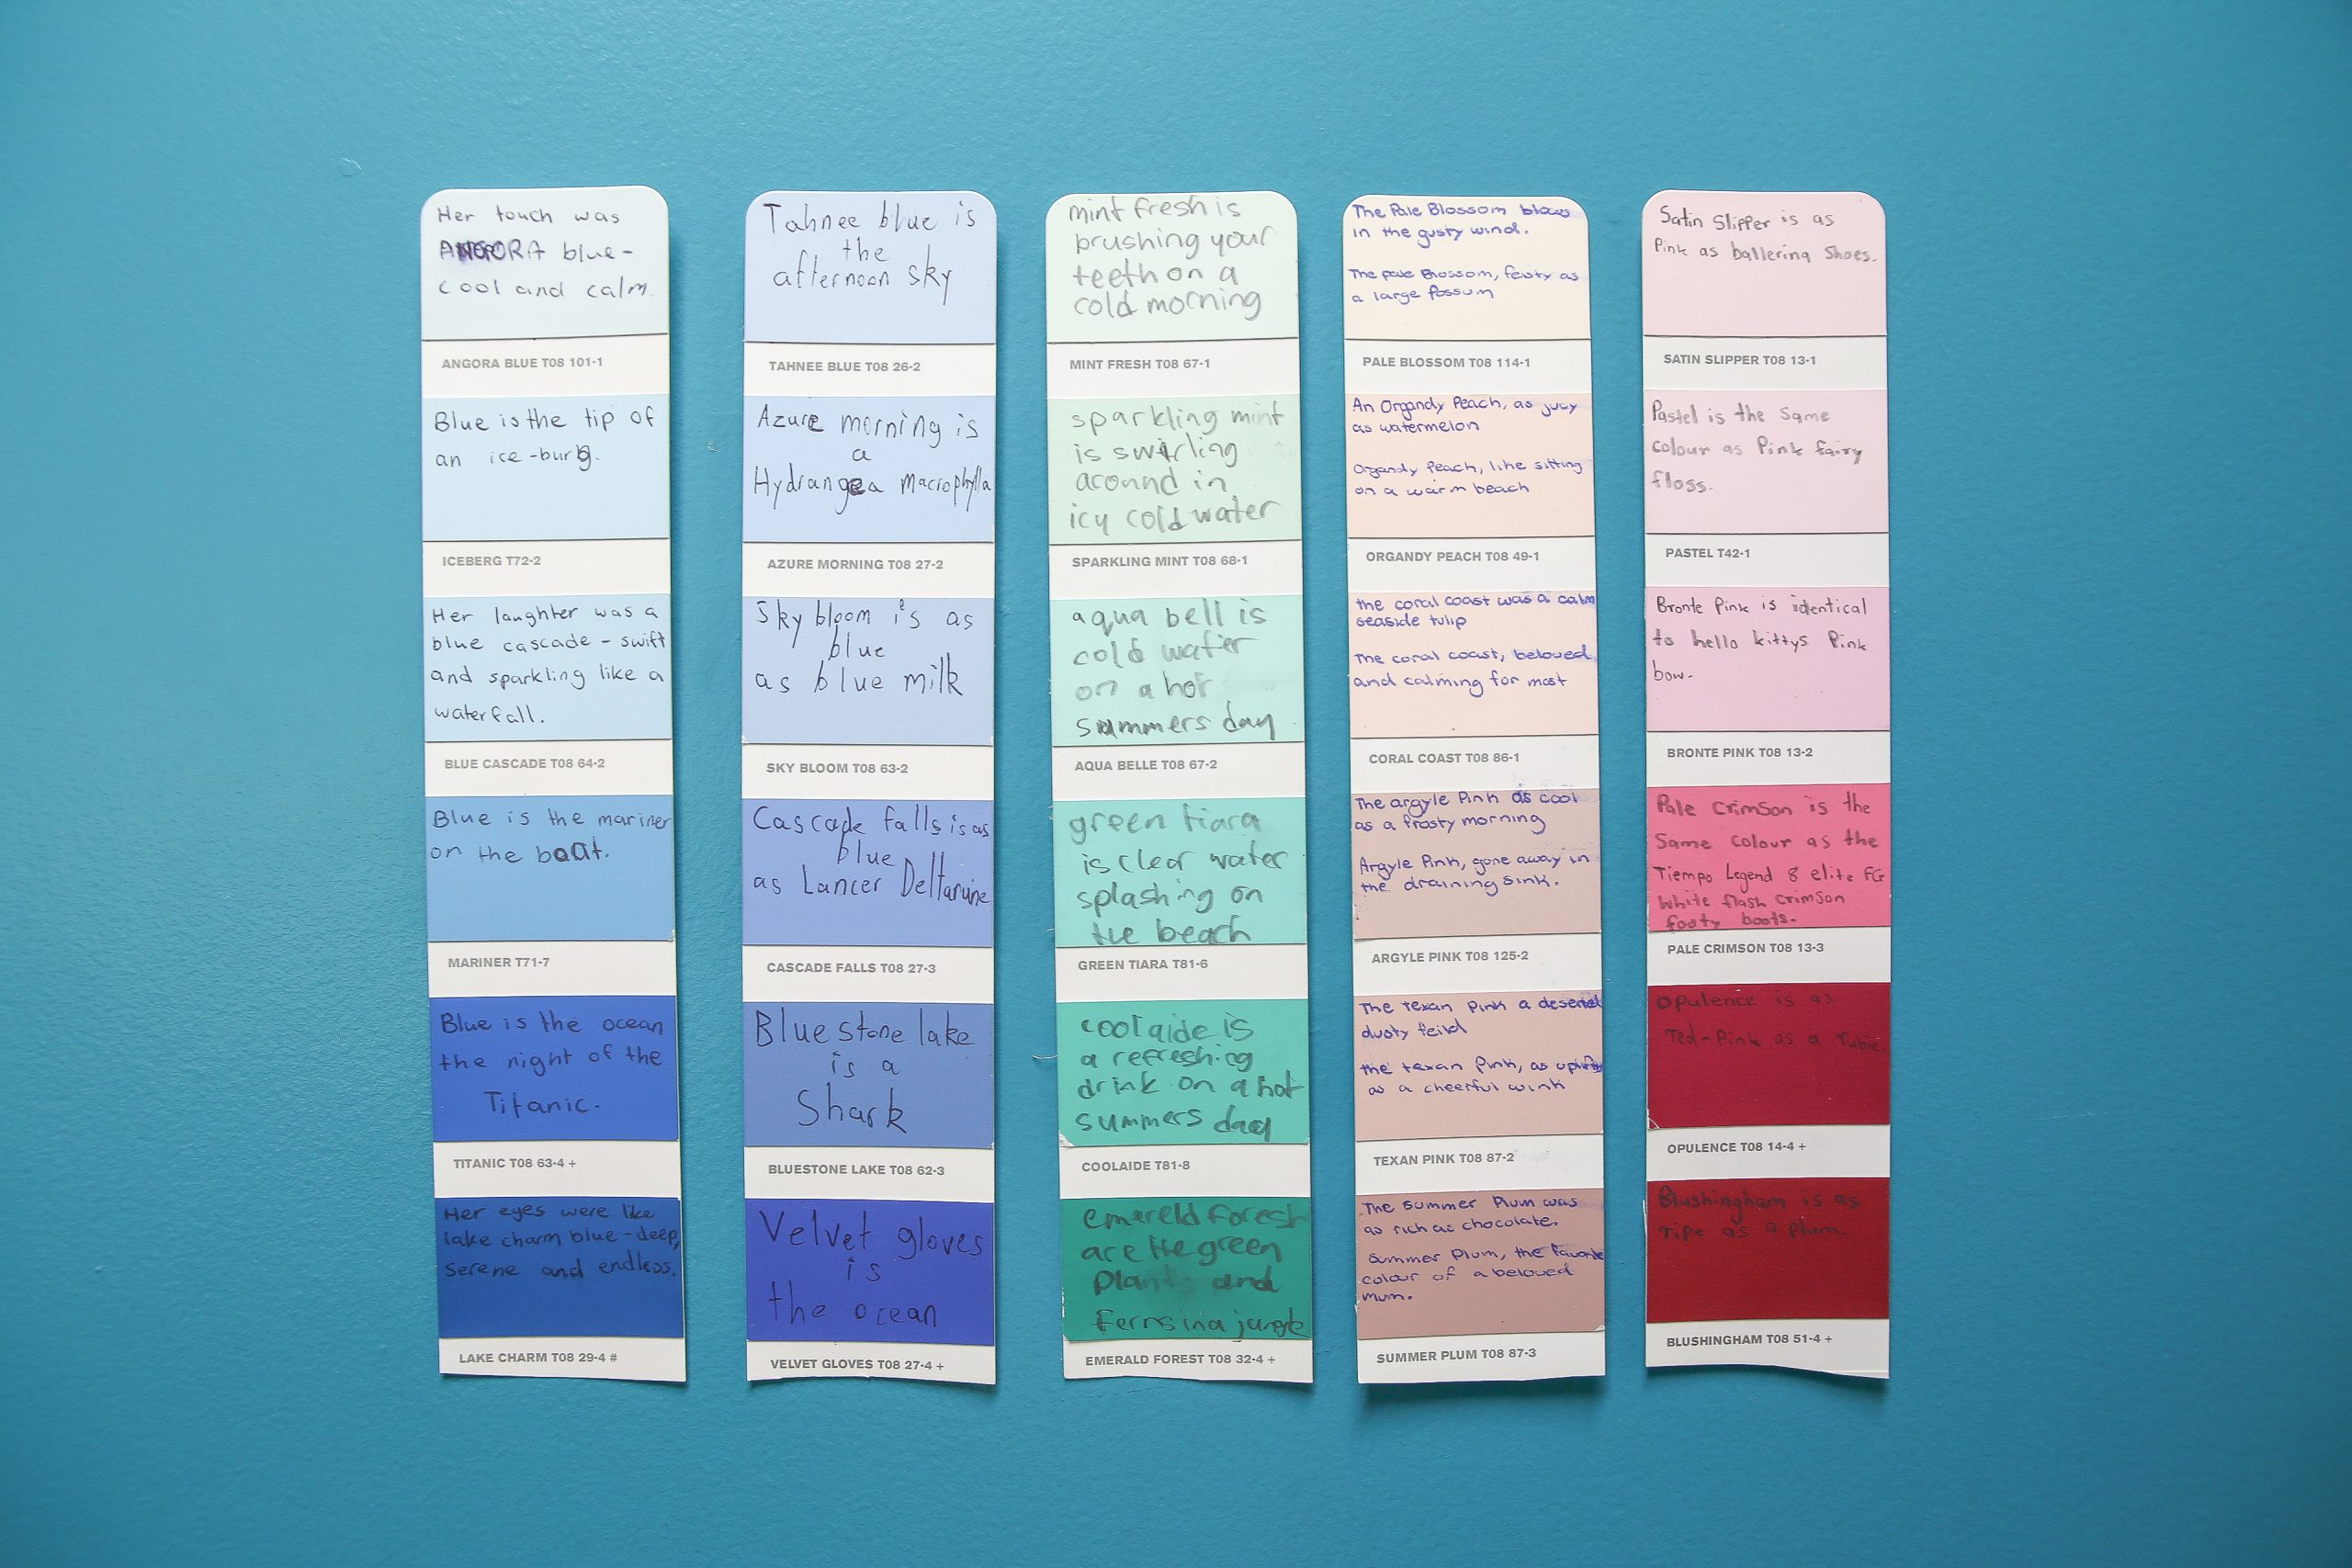 Her touch was
ANGORA blue-
cool and calm.
ANGORA BLUE T08 101-1
Blue is the tip of
an ice-burg.
ICEBERG T72-2
Her laughter was a
blue cascade - swift
and sparkling like a
waterfall.
BLUE CASCADE T08 64-2
Blue is the mariner
on the boat.
MARINER T71-7
Blue is the ocean
the night of the
Titanic.
TITANIC T08 63-4 +
Her eyes were like
lake charm blue - deep,
serene and endless.
LAKE CHARM T08 29-4 #
Tahnee blue is
the
afternoon sky
TAHNEE BLUE T08 26-2
Azure morning is
a
Hydrangea Macrophylla
AZURE MORNING T08 27-2
Sky bloom is as
blue
as blue milk
SKY BLOOM T08 63-2
Cascade falls is as
blue
as Lancer Deltarune
CASCADE FALLS T08 27-3
Bluestone lake
is a
Shark
BLUESTONE LAKE T08 62-3
Velvet gloves
is
the ocean
VELVET GLOVES T08 27-4 +
mint fresh is
brushing your
teeth on a
cold morning
MINT FRESH T08 67-1
sparkling mint
is swirling
around in
icy cold water
SPARKLING MINT T08 68-1
aqua bell is
cold water
on a hot
summers day
AQUA BELLE T08 67-2
green tiara
is clear water
splashing on
the beach
GREEN TIARA T81-6
coolaide is
a refreshing
drink on a hot
summers day
COOLAIDE T81-8
emereld forest
are the green
plants and
ferns in a jungle
EMERALD FOREST T08 32-4 +
The Pale Blossom blows
in the gusty wind.
The pale Blossom, feisty as
a large possum
PALE BLOSSOM T08 114-1
An Organdy Peach, as jucy
as watermelon
Organdy Peach, like sitting
on a warm beach
ORGANDY PEACH T08 49-1
the coral coast was a calm
seaside tulip
The coral coast, beloved
and calming for most
CORAL COAST T08 86-1
The argyle Pink as cool
as a frosty morning
Argyle Pink, gone away in
the draining sink.
ARGYLE PINK T08 125-2
The texan Pink a deserted
dusty feild
the texan Pink, as uplifting
as a cheerful wink
TEXAN PINK T08 87-2
The summer Plum was
as rich as chocolate.
Summer Plum, the favorite
colour of a beloved
mum.
SUMMER PLUM T08 87-3
Satin Slipper is as
Pink as ballering Shoes.
SATIN SLIPPER T08 13-1
Pastel is the Same
colour as Pink fairy
floss.
PASTEL T42-1
Bronte Pink is identical
to hello kittys Pink
bow.
BRONTE PINK T08 13-2
Pale Crimson is the
Same colour as the
Tiempo Legend 8 elite FG
White flash crimson
footy boots.
PALE CRIMSON T08 13-3
Opulence is as
red-Pink as a rubie.
OPULENCE T08 14-4 +
Blushingham is as
ripe as a plum.
BLUSHINGHAM T08 51-4 +